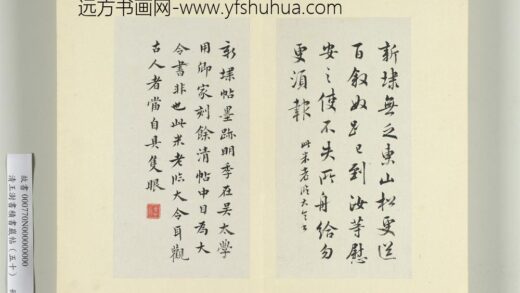 远方书画网-www.yfshuhua.com
新埭無乏東山松更送
百叙奴已到汝等慰
安之使不失所舟給勿
更須報
此米老臨大令書
新埭帖墨跡明季在吳太學
用卿家刻餘清帖中目為大
令書非也此米老臨大令耳觀
古人者當自具隻眼
故書 000770N000000000
清王澍書積書巖帖(五十)